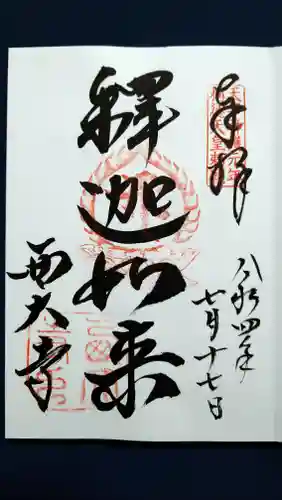 奉拝
八和四年
七月十七日
釋迦如来
西大寺